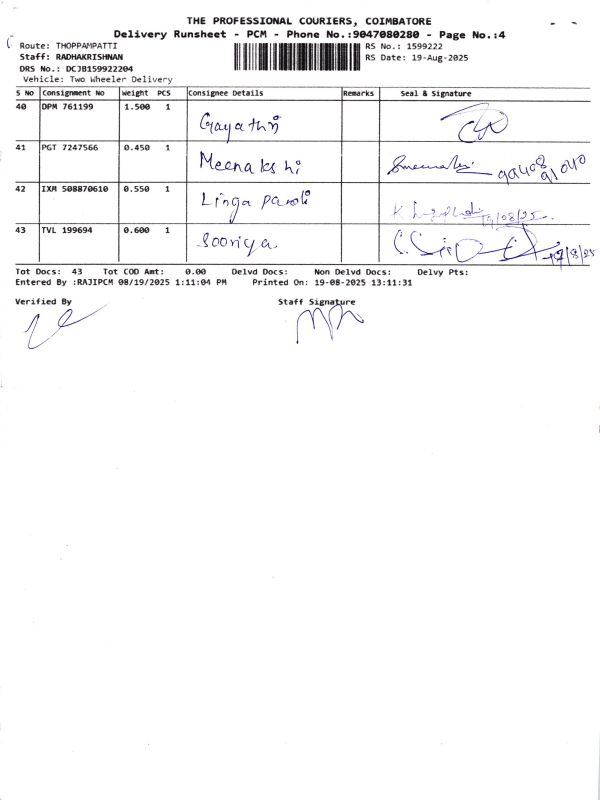 THE PROFESSIONAL COURIERS, COIMBATORE
Delivery Runsheet - PCM - Phone No.:9047080280 - Page No.:4
Route: THOPPAMPATTI RS No.: 1599222
Staff: RADHAKRISHNAN RS Date: 19-Aug-2025
DRS No.: DCJB159922204
Vehicle: Two Wheeler Delivery
S No Consignment No Weight PCS Consignee Details Remarks Seal & Signature
40 DPM 761199 1.500 1 Gayathri
41 PGT 7247566 0.450 1 Meenakshi
42 IXM 508870610 0.550 1 Linga 19/08/25
43 TVL 199694 0.600 1 Sooriya 19/8/25
Tot Docs: 43 Tot COD Amt: 0.00 Delvd Docs: Non Delvd Docs: Delvy Pts:
Entered By :RAJIPCM 08/19/2025 1:11:04 PM Printed On: 19-08-2025 13:11:31
Verified By Staff Signature